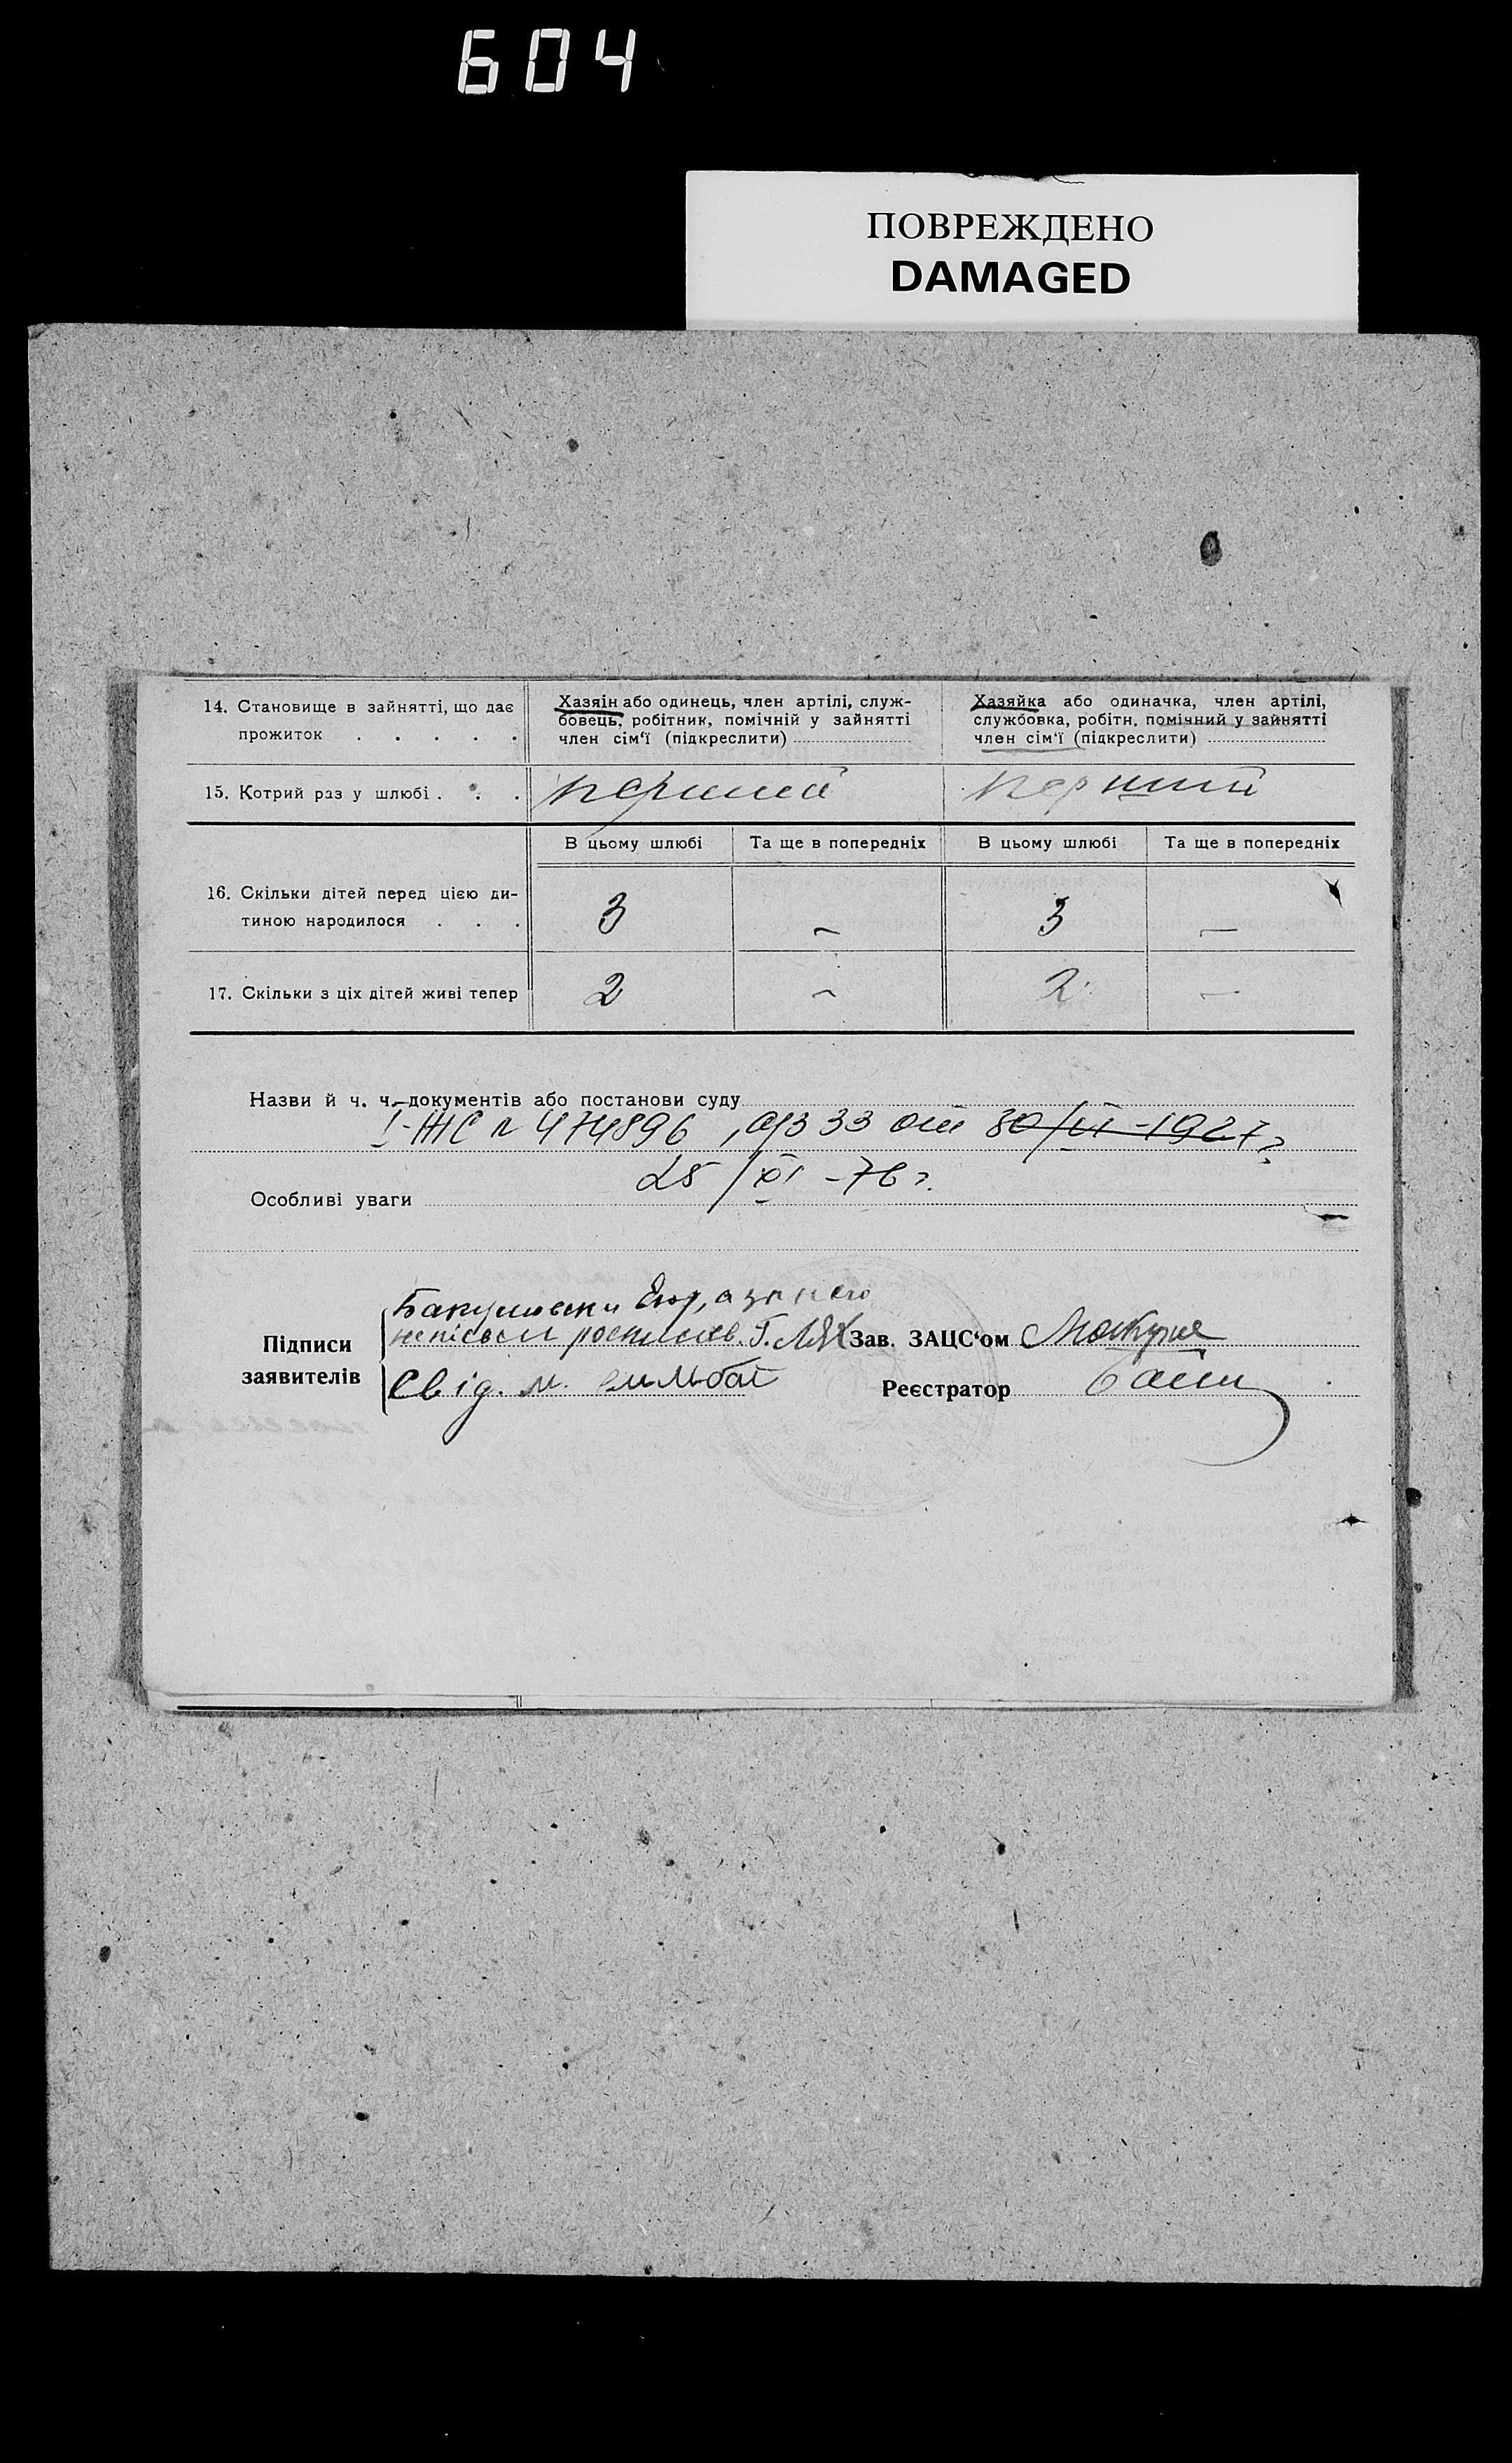 604
ПОВРЕЖДЕНО
DAMAGED
14. Становище в зайнятті, що дає
прожиток . . . . .
Хазяін або одинець, член артілі, служ-
бовець, робітник, помічній у зайнятті
член сім‘ї (підкреслити)
Хазяйка або одиначка, член артілі,
службовка, робітн. помічний у зайнятті
член сім‘ї (підкреслити)
15. Котрий раз у шлюбі . . .
перший
перший
В цьому шлюбі
Та ще в попередніх
В цьому шлюбі
Та ще в попередніх
16. Скільки дітей перед цією ди-
тиною народилося . . .
3 – 3 –
17. Скільки з ціх дітей живі тепер
2 – 2 –
Назви й ч. ч. документів або постанови суду
І-ЖС № 474896, а/з 33 от 30/ІІ-1927 г
Особливі уваги
25/ХІ-76 г.
Підписи
заявителів
Свід. м.
Зав. ЗАЦС‘ом
Реєстратор